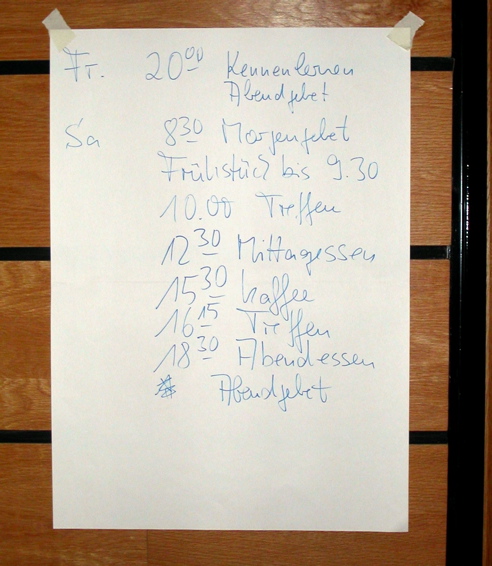 Fr. 20⁰⁰ Kennenlernen
Abendgebet
Sa 8³⁰ Morgengebet
Frühstück bis 9.30
10.00 Treffen
12³⁰ Mittagessen
15³⁰ Kaffee
16¹⁵ Treffen
18³⁰ Abendessen
Abendgebet